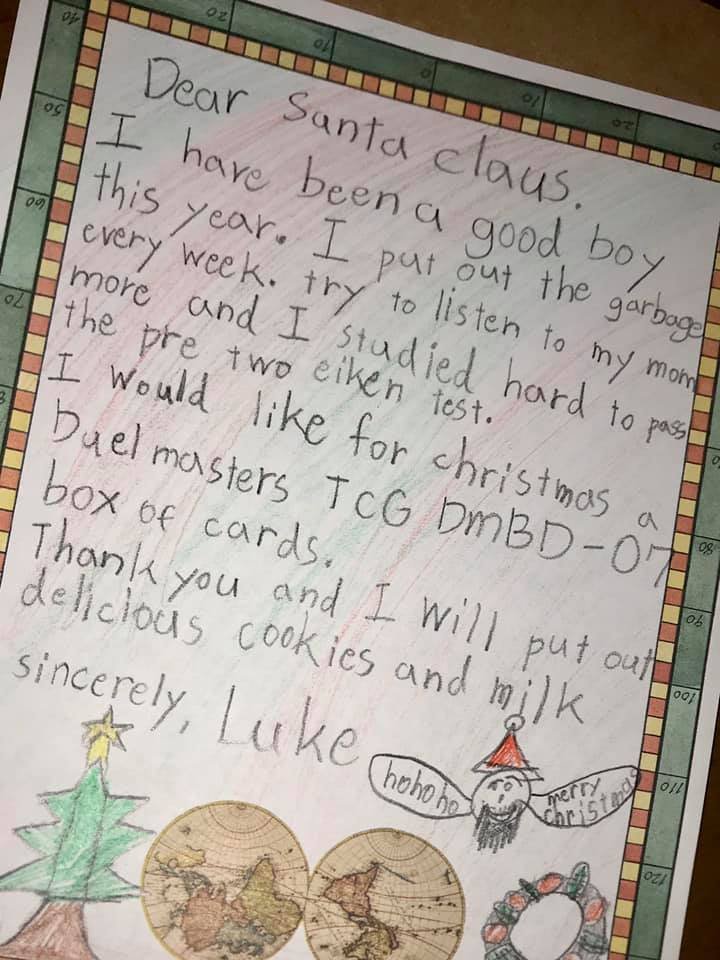 40 20 10 0 10 20
50
60
70
Dear Santa claus.
I have been a good boy
this year. I put out the garbage
every week. try to listen to my mom
more and I studied hard to pass
the pre two eiken test.
I would like for christmas a
Duel masters TCG DMBD-07
box of cards.
Thank you and I will put out
delicious cookies and milk
sincerely, Luke
hohoho
merry
christmas
80
90
100
110
120